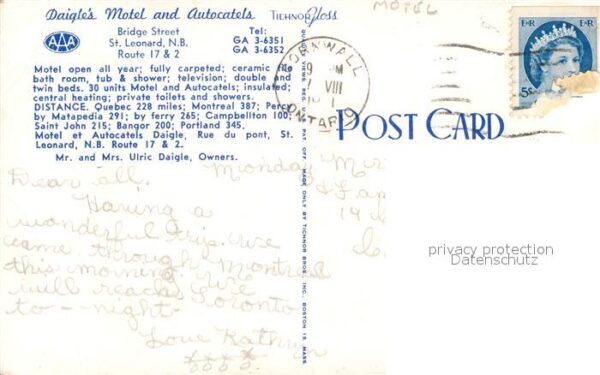 Daigle's Motel and Autocatels
TICHNOR Gloss
MOTEL
AAA
Bridge Street
St. Leonard, N.B.
Route 17 & 2
Tel:
GA 3-6351
GA 3-6352
Motel open all year; fully carpeted; ceramic tile
bath room, tub & shower; television; double and
twin beds. 30 units Motel and Autocatels; insulated;
central heating; private toilets and showers.
DISTANCE. Quebec 228 miles; Montreal 387; Percy
by Matapedia 291; by ferry 265; Campbellton 100;
Saint John 215; Bangor 200; Portland 345.
Motel et Autocatels Daigle, Rue du pont, St.
Leonard, N.B. Route 17 & 2.
Mr. and Mrs. Ulric Daigle, Owners.
Monday
Dear all,
Having a
wonderful trip. We
came through Montreal
this morning. We
will reach Toronto
to-night.
Love Kathryn
xxxx
oooo
MADE ONLY BY TICHNOR BROS., INC. BOSTON 15, MASS.
CORNWALL
VIII
ONTARIO
EIIR EIIR
5¢
POST CARD
19
privacy protection
Datenschutz